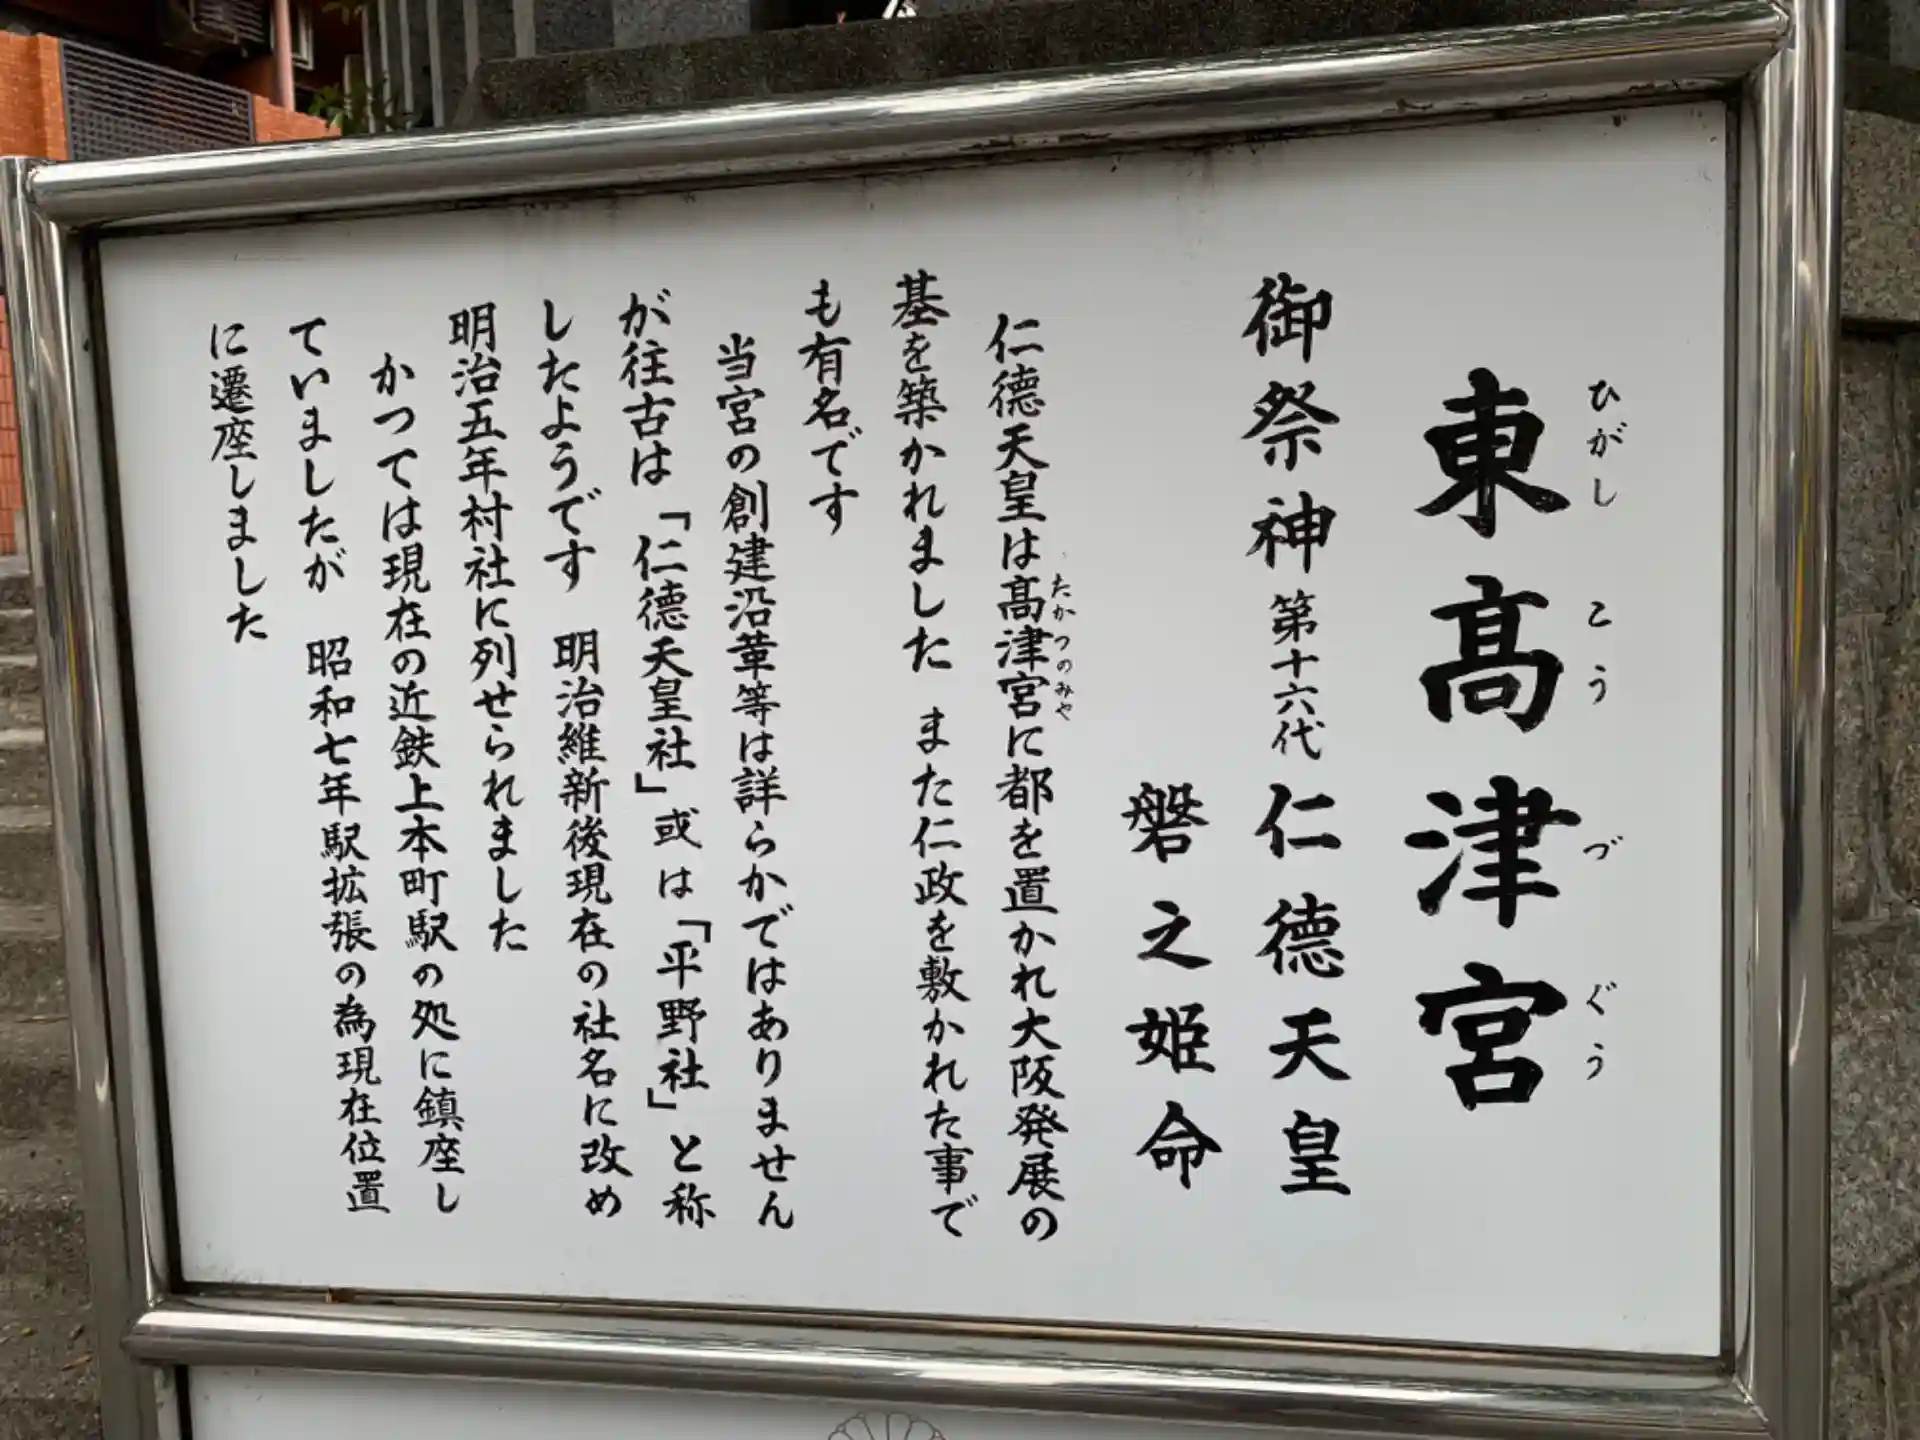 東髙津宮
ひがしこうづぐう
御祭神 第十六代 仁德天皇
磐之姫命
仁德天皇は髙津宮に都を置かれ大阪発展の
たかつのみや
基を築かれました また仁政を敷かれた事で
も有名です
当宮の創建沿革等は詳らかではありません
が往古は「仁德天皇社」或は「平野社」と称
したようです 明治維新後現在の社名に改め
明治五年村社に列せられました
かつては現在の近鉄上本町駅の処に鎮座し
ていましたが 昭和七年駅拡張の為現在位置
に遷座しました